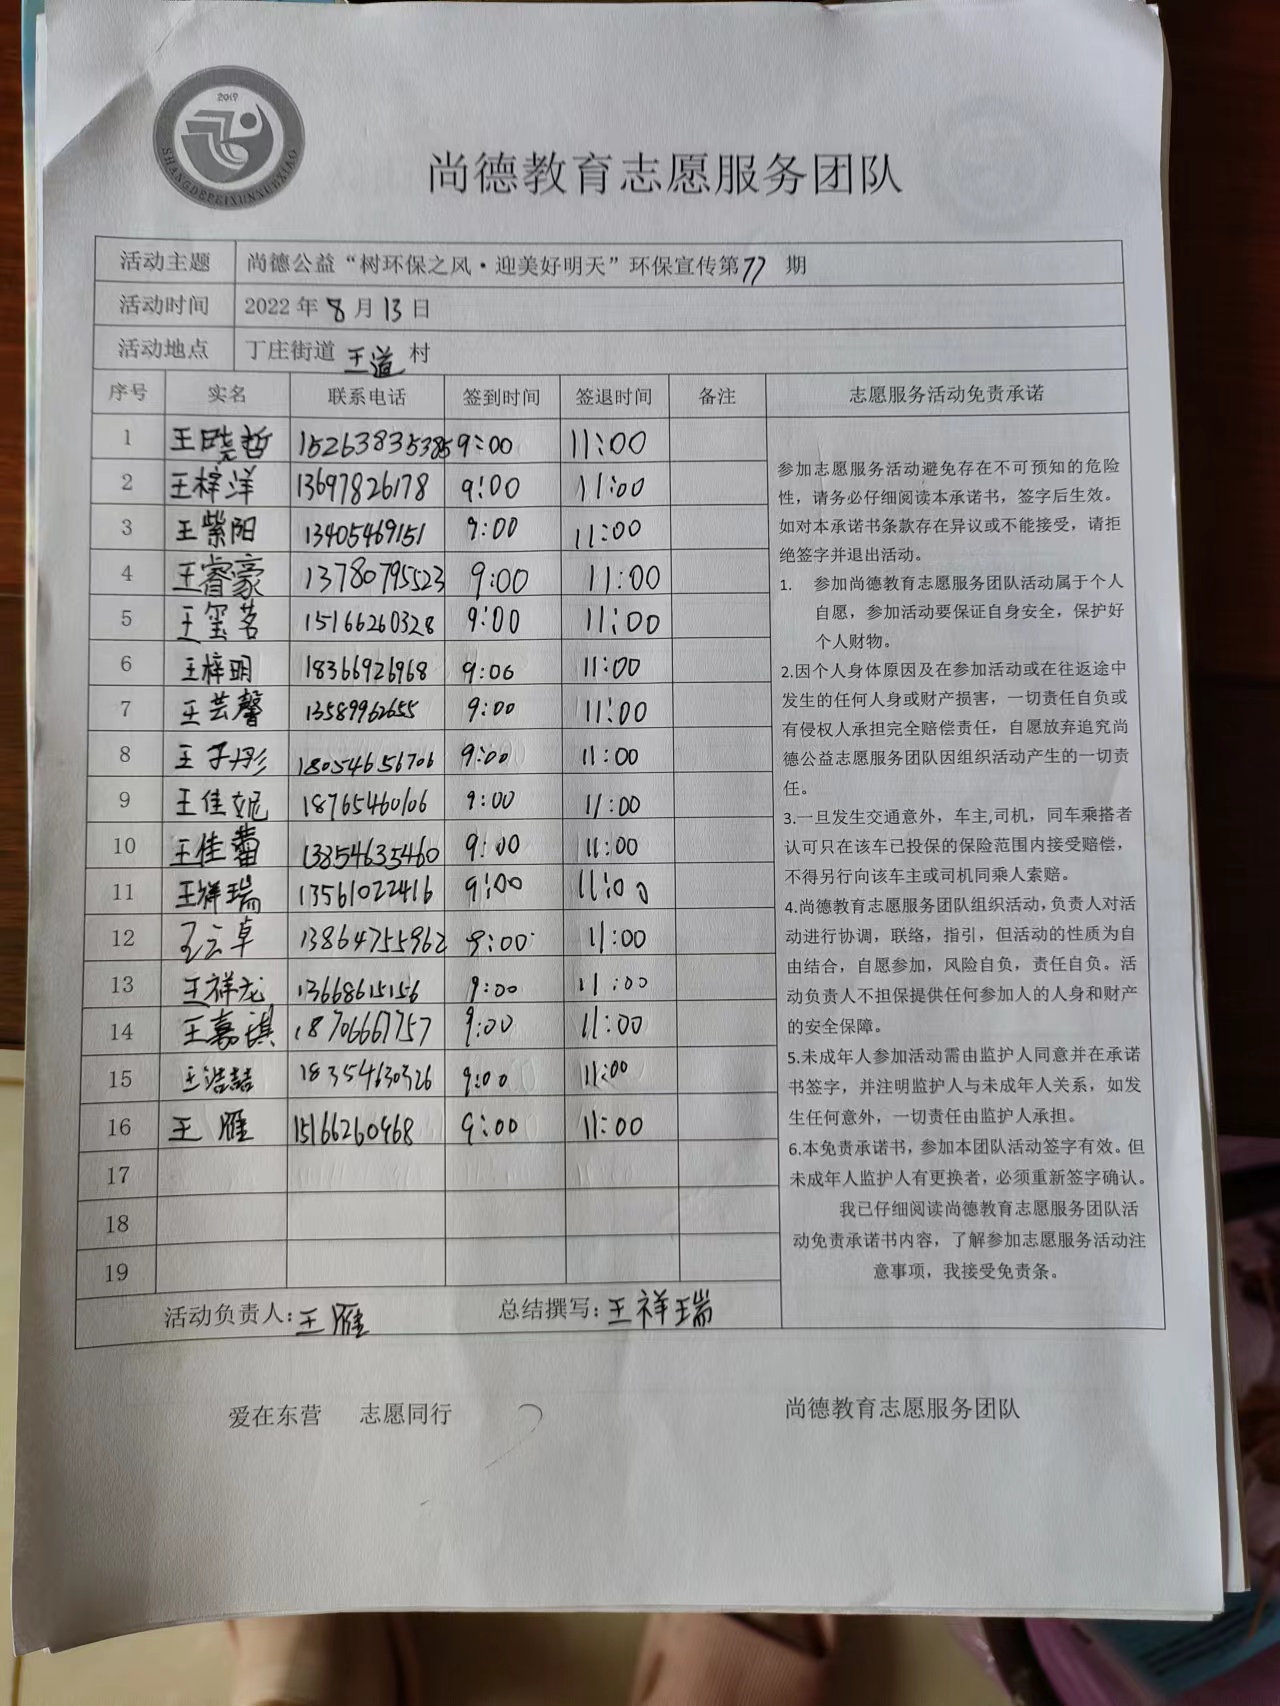 2019
SHANGDEPEIXUNXUEXIAO
尚德教育志愿服务团队
活动主题 尚德公益“树环保之风·迎美好明天”环保宣传第77期
活动时间 2022年8月13日
活动地点 丁庄街道王道村
序号 实名 联系电话 签到时间 签退时间 备注 志愿服务活动免责承诺
1 王晓哲 15263835385 9:00 11:00
2 王梓洋 13697826178 9:00 11:00
3 王紫阳 13405469151 9:00 11:00
4 王睿豪 13780795523 9:00 11:00
5 王玺茗 15166260328 9:00 11:00
6 王梓玥 18366926968 9:00 11:00
7 王芸馨 13589962655 9:00 11:00
8 王子彤 18054656706 9:00 11:00
9 王佳妮 18765460106 9:00 11:00
10 王佳 13854635460 9:00 11:00
11 王祥瑞 13561022416 9:00 11:00
12 王云卓 13864755962 9:00 11:00
13 王祥龙 13668615156 9:00 11:00
14 王嘉祺 18706667757 9:00 11:00
15 王浩喆 18354630326 9:00 11:00
16 王雁 15166260468 9:00 11:00
17
18
19
参加志愿服务活动避免存在不可预知的危险
性，请务必仔细阅读本承诺书，签字后生效。
如对本承诺书条款存在异议或不能接受，请拒
绝签字并退出活动。
1. 参加尚德教育志愿服务团队活动属于个人
自愿，参加活动要保证自身安全，保护好
个人财物。
2.因个人身体原因及在参加活动或在往返途中
发生的任何人身或财产损害，一切责任自负或
有侵权人承担完全赔偿责任，自愿放弃追究尚
德公益志愿服务团队因组织活动产生的一切责
任。
3.一旦发生交通意外，车主,司机，同车乘搭者
认可只在该车已投保的保险范围内接受赔偿，
不得另行向该车主或司机同乘人索赔。
4.尚德教育志愿服务团队组织活动，负责人对活
动进行协调，联络，指引，但活动的性质为自
由结合，自愿参加，风险自负，责任自负。活
动负责人不担保提供任何参加人的人身和财产
的安全保障。
5.未成年人参加活动需由监护人同意并在承诺
书签字，并注明监护人与未成年人关系，如发
生任何意外，一切责任由监护人承担。
6.本免责承诺书，参加本团队活动签字有效。但
未成年人监护人有更换者，必须重新签字确认。
我已仔细阅读尚德教育志愿服务团队活
动免责承诺书内容，了解参加志愿服务活动注
意事项，我接受免责条。
活动负责人:王雁 总结撰写:王祥瑞
爱在东营 志愿同行 尚德教育志愿服务团队